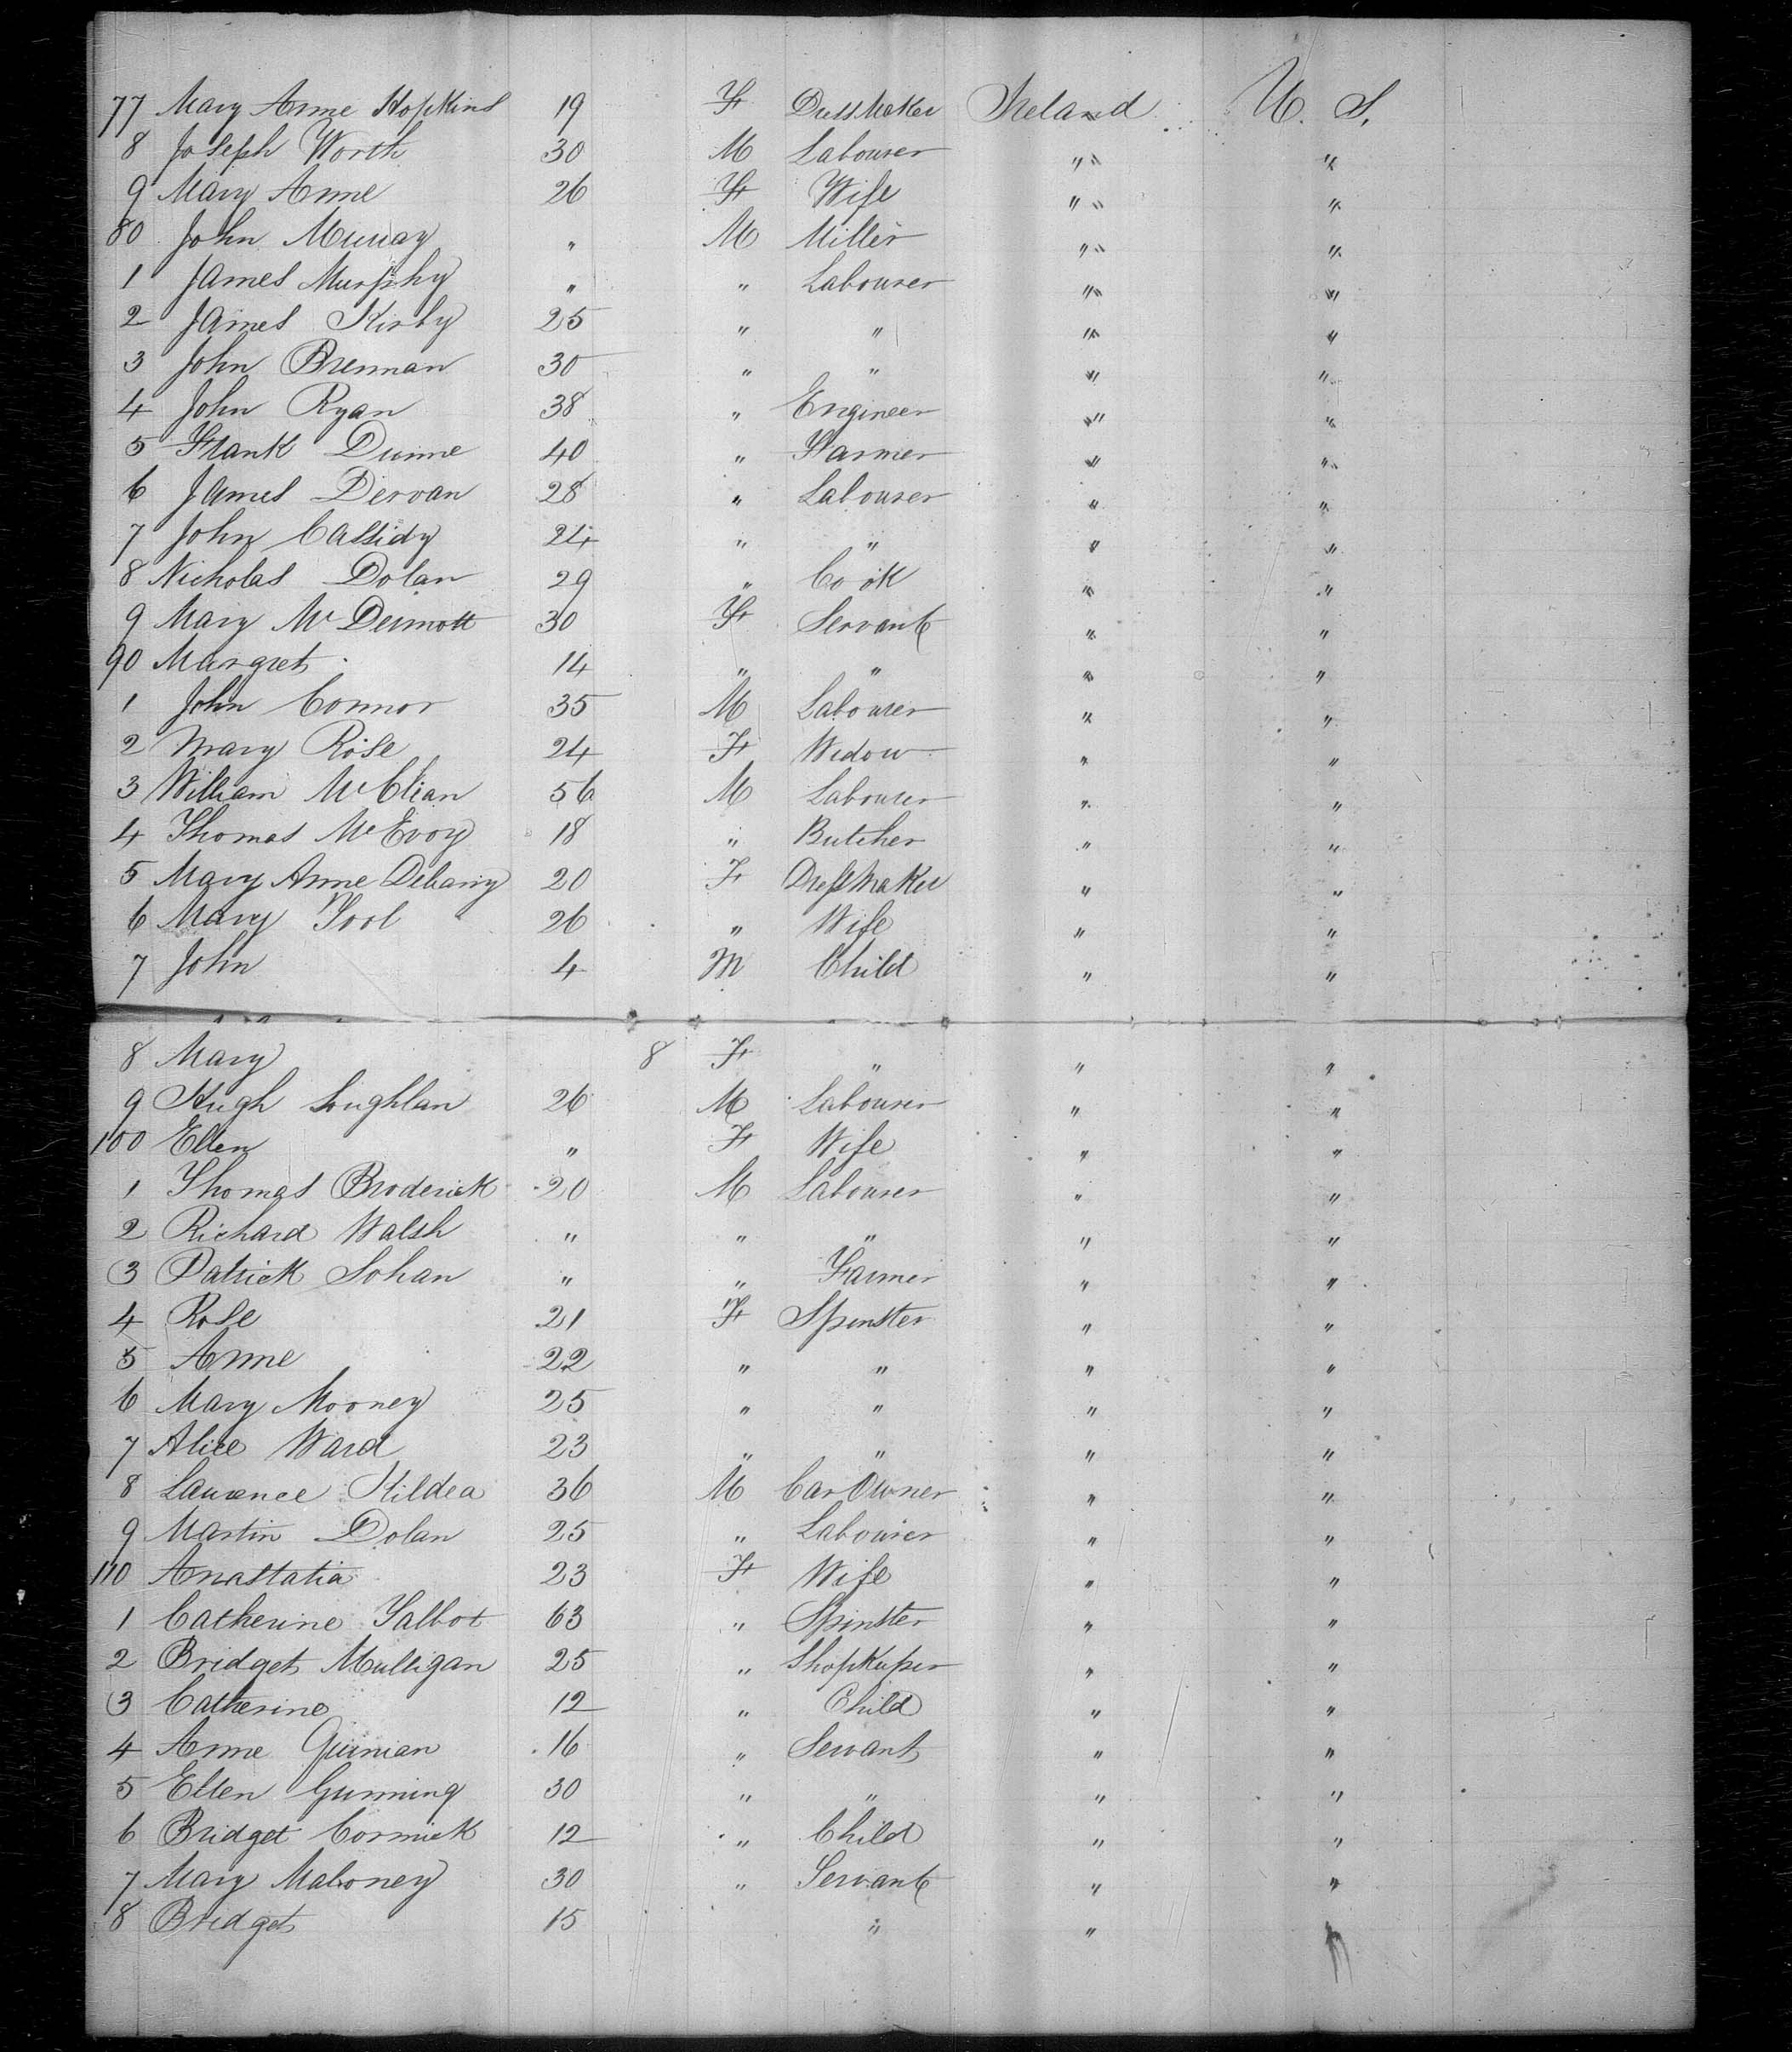 77 Mary Anne Hopkins 19 F DressMaker Ireland U. S.
8 Joseph Worth 30 M Labourer " "
9 Mary Anne 26 F Wife " "
80 John Murray " M Miller " "
1 James Murphy " " Labourer " "
2 James Kirby 25 " " " "
3 John Brennan 30 " " " "
4 John Ryan 38 " Engineer " "
5 Frank Dunne 40 " Farmer " "
6 James Dervan 28 " Labourer " "
7 John Cassidy 24 " " " "
8 Nicholas Dolan 29 " Cook " "
9 Mary McDermott 30 F Servant " "
90 Margret 14 " " " "
1 John Connor 35 M Labourer " "
2 Mary Rose 24 F Widow " "
3 William McClian 56 M Labourer " "
4 Thomas McEvoy 18 " Butcher " "
5 Mary Anne Delany 20 F DressMaker " "
6 Mary Tool 26 " Wife " "
7 John 4 M Child " "
8 Mary 8 F " " "
9 Hugh Loughlan 26 M Labourer " "
100 Ellen " F Wife " "
1 Thomas Broderick 20 M Labourer " "
2 Richard Walsh " " " " "
3 Patrick Sohan " " Farmer " "
4 Rose 21 F Spinster " "
5 Anne 22 " " " "
6 Mary Mooney 25 " " " "
7 Alice Ward 23 " " " "
8 Laurence Kildea 36 M Car Owner " "
9 Martin Dolan 25 " Labourer " "
110 Anastatia 23 F Wife " "
1 Catherine Talbot 63 " Spinster " "
2 Bridget Mulligan 25 " ShopKeeper " "
3 Catherine 12 " Child " "
4 Anne Guinian 16 " Servant " "
5 Ellen Gunning 30 " " " "
6 Bridget Cormick 12 " Child " "
7 Mary Maloney 30 " Servant " "
8 Bridget 15 " " "